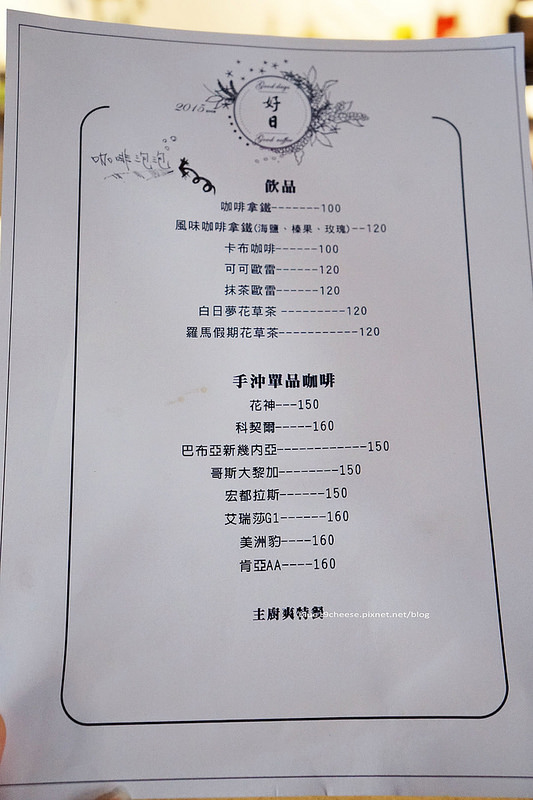 Good days
好
日
Good coffee
2015
咖啡泡泡
飲品
咖啡拿鐵-------100
風味咖啡拿鐵(海鹽、榛果、玫瑰)--120
卡布咖啡------100
可可歐蕾------120
抹茶歐蕾------120
白日夢花草茶 ---------120
羅馬假期花草茶-----------120
手沖單品咖啡
花神---150
科契爾-----160
巴布亞新幾內亞------------150
哥斯大黎加--------150
宏都拉斯------150
艾瑞莎G1------160
美洲豹----160
肯亞AA----160
主廚爽特餐
cheese.pixnet.net/blog